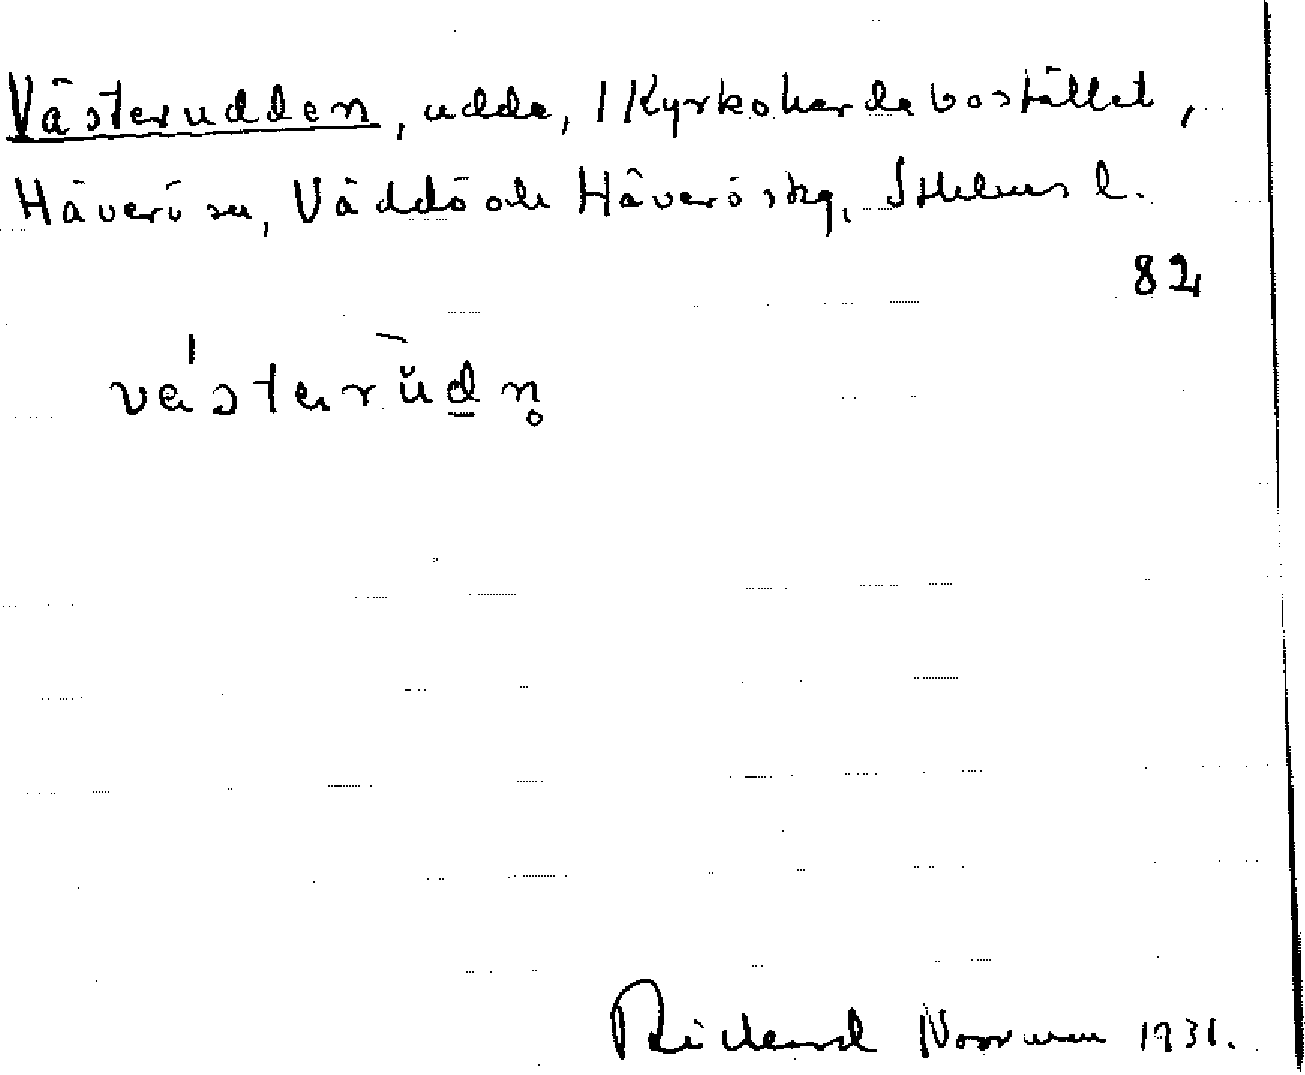 Västerudden, udde, 1 Kyrkoherdebostället,
Häverö sn, Väddö och Häverö skg, Sthlms l.
82
västerŭdn̥
Rickard Norrman 1931.